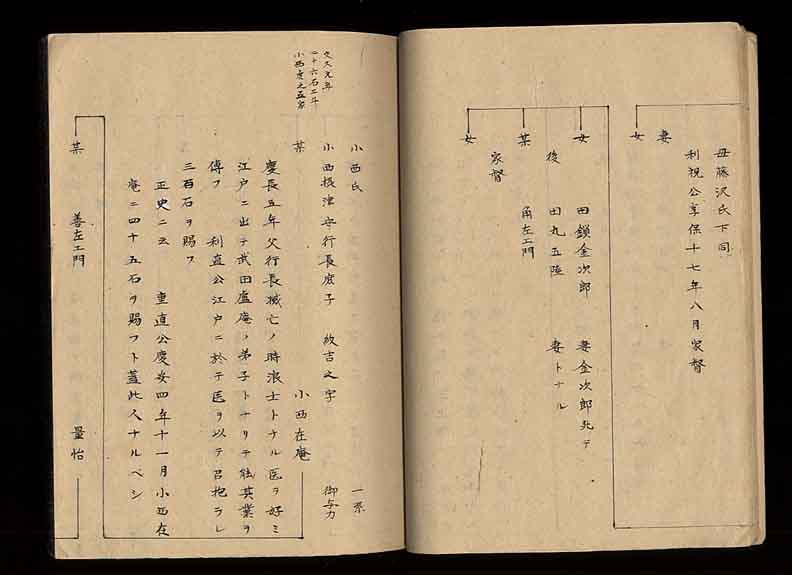 母藤沢氏下同
利視公享保十七年八月家督
妻
女
女 田鎖金次郎 妻金次郎死テ
後 田丸五陸 妻トナル
某 角左エ門
家督
女
文久元年
二十六石二斗
小西彦之五家
小西氏 一系
小西摂津守行長庶子 紋吉之字 御与力
某 小西在庵
慶長五年父行長滅亡ノ時浪士トナル医ヲ好ミ
江戸ニ出テ武田盧庵ノ弟子トナリテ能其業ヲ
傳フ 利直公江戸ニ於テ医ヲ以テ召抱ラレ
三百石ヲ賜フ
正史ニ云 重直公慶安四年十一月小西在
庵ニ四十五石ヲ賜フト蓋此人ナルベシ
某 善左エ門 量怡